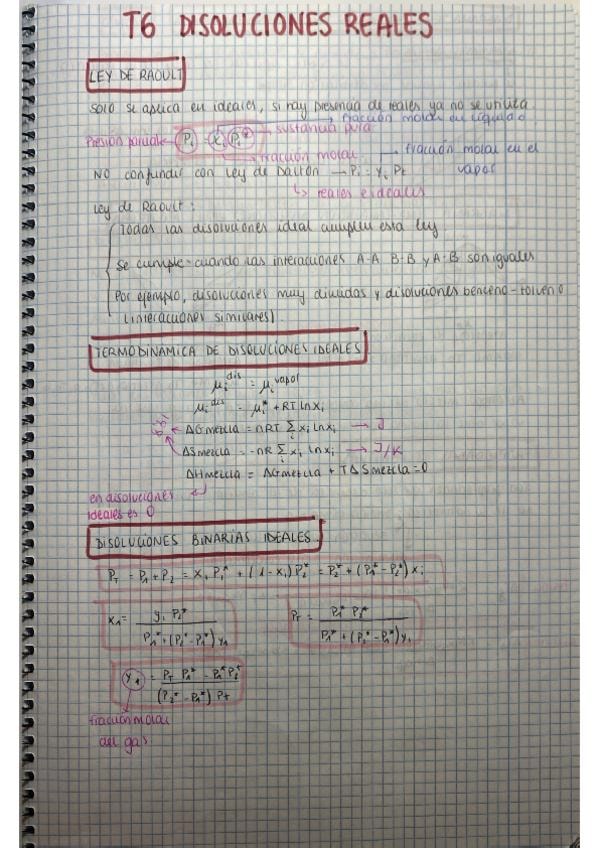 T6 DISOLUCIONES REALES
LEY DE RAOULT
Solo se aplica en ideales, si hay presencia de reales ya no se utiliza
fracción molar en líquido
Presión parcial Pi = Xi Pi* → sustancia pura
→ fracción molar → fracción molar en el
NO confundir con Ley de Dalton → Pi = Yi PT vapor
↳ reales e ideales
Ley de Raoult:
Todas las disoluciones ideal cumplen esta ley
Se cumple cuando las interacciones A-A B-B y A-B son iguales
Por ejemplo, disoluciones muy diluidas y disoluciones benceno-tolueno
(interacciones similares).
TERMODINÁMICA DE DISOLUCIONES IDEALES
μi dis = μi vapor
μi dis = μi* + RT ln xi
ΔGmezcla = nRT Σi xi ln xi → J
ΔSmezcla = -nR Σi xi ln xi → J/K
ΔHmezcla = ΔGmezcla + TΔSmezcla = 0
en disoluciones
ideales es 0
DISOLUCIONES BINARIAS IDEALES
PT = P1 + P2 = X1 P1* + (1 - X1) P2* = P2* + (P1* - P2*) Xi
X1 = y1 P2* / P1* + (P2* - P1*) y1
PT = P1* P2* / P1* + (P2* - P1*) y1
Y1 = PT P1* - P1* P2* / (P1* - P2*) PT
fracción molar
del gas